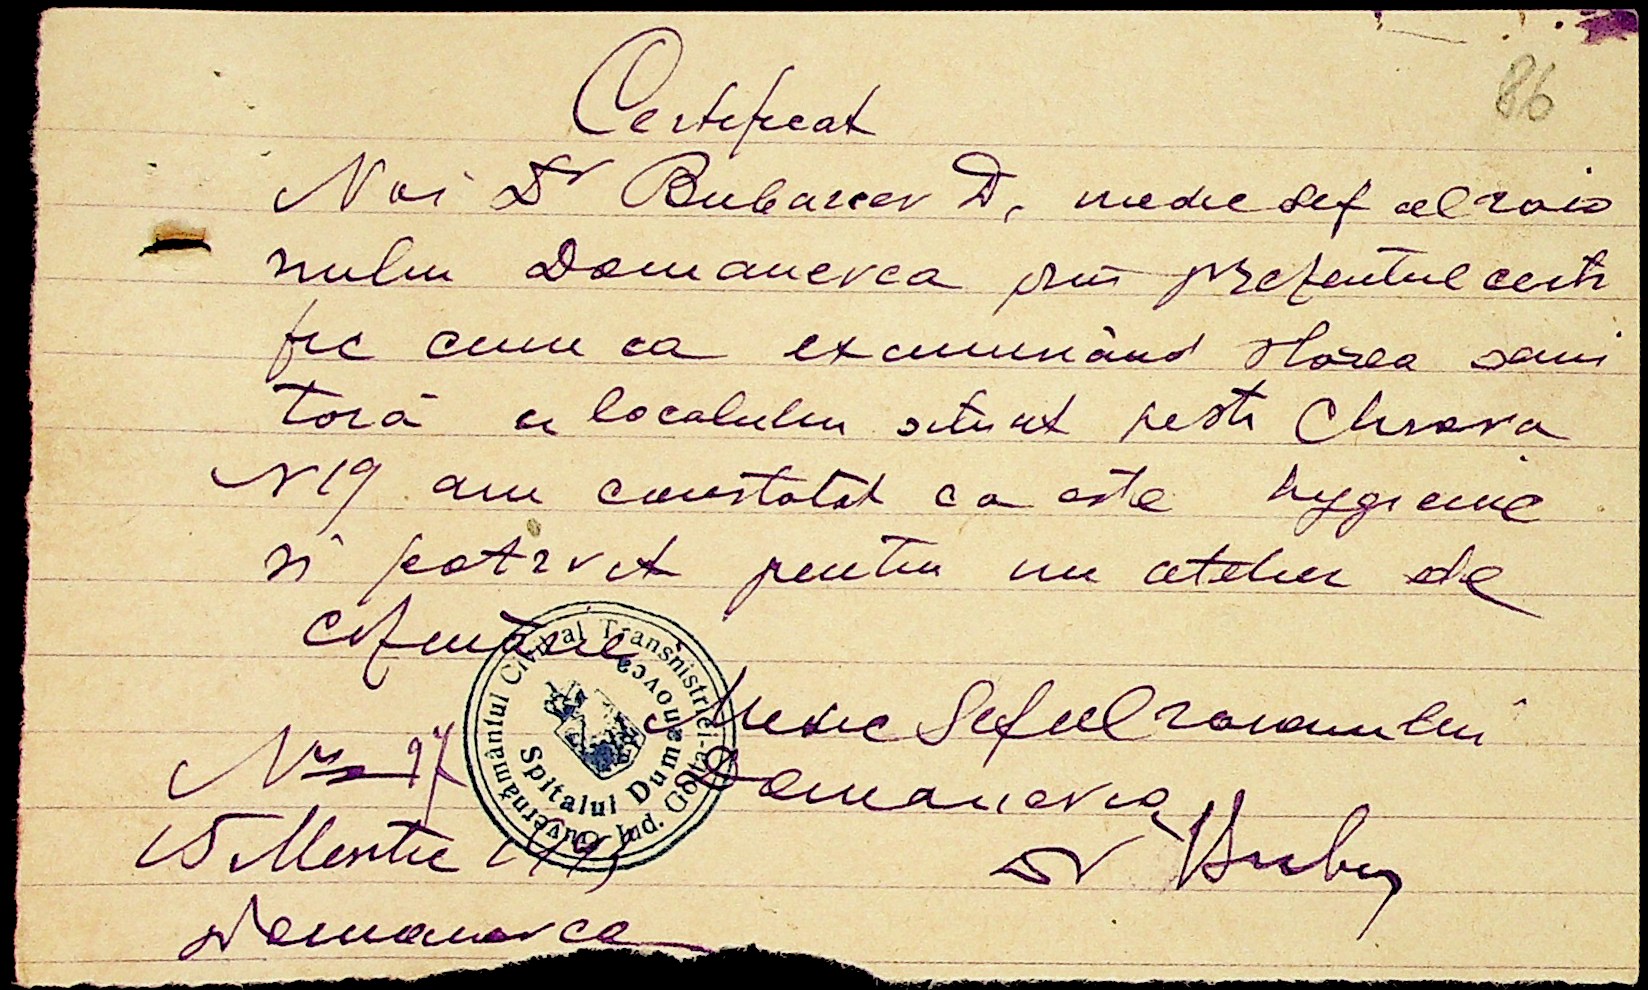 86
Certificat
Noi Dr Bubarcev D, medic sef al raio
nului Domanevca prin prezentul certi
fic cum ca examinând starea sani
tară a localului situat pestr
N 19 am constatat ca este hygienic
si potrivit pentru un atelier de
cismărie
Medic Sef al raionului
Domanevca
Dr
No 97
15 Martie 1943
Domanevca
Guvernământul Civil al Transnistriei - Jud. Golta
Spitalul Dumanovca